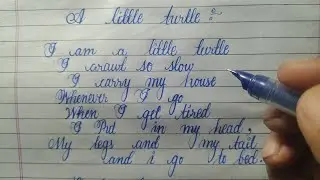 A little turtle :~
I am a little turtle
I crawl so slow
I carry my house
Whenever I go
When I get tired
I Put in my head.
My legs and my tail
and i go to bed.